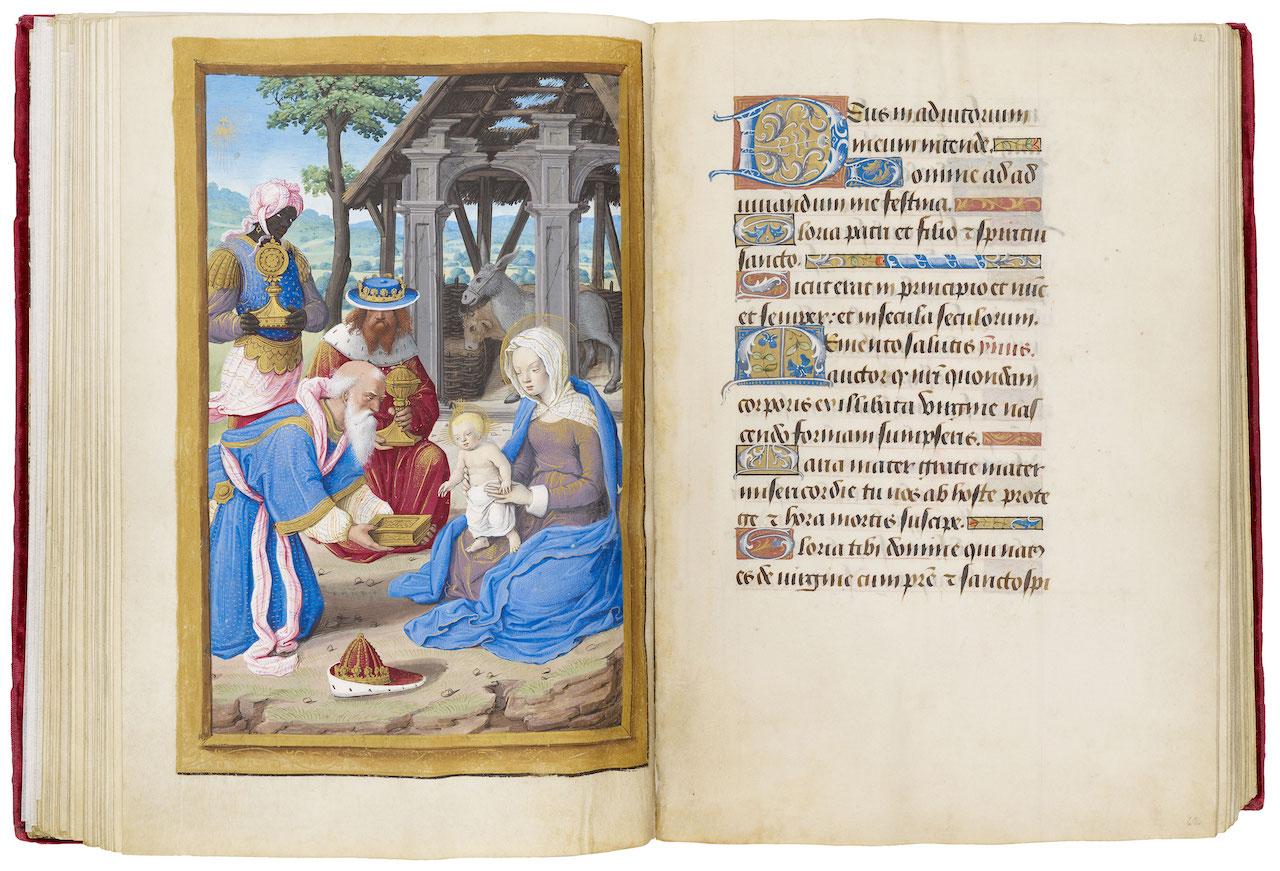 62
Deus in adiutorium
meum intende.
Domine ad ad
iuuandum me festina.
Gloria patri et filio ⁊ spiritui
sancto.
Sicut erat in principio et nūc
et semper: et in secula seculorum.
Memento salutis ymnus.
auctor qͥ nr̄i quondam
corporis ex illibata virgine nas
cendo formam sumpseris.
Maria mater gratie mater
misericordie tu nos ab hoste prote
ge ⁊ hora mortis suscipe.
Gloria tibi domine qui natꝰ
es de virgine cum pr̄e ⁊ sancto spi
62